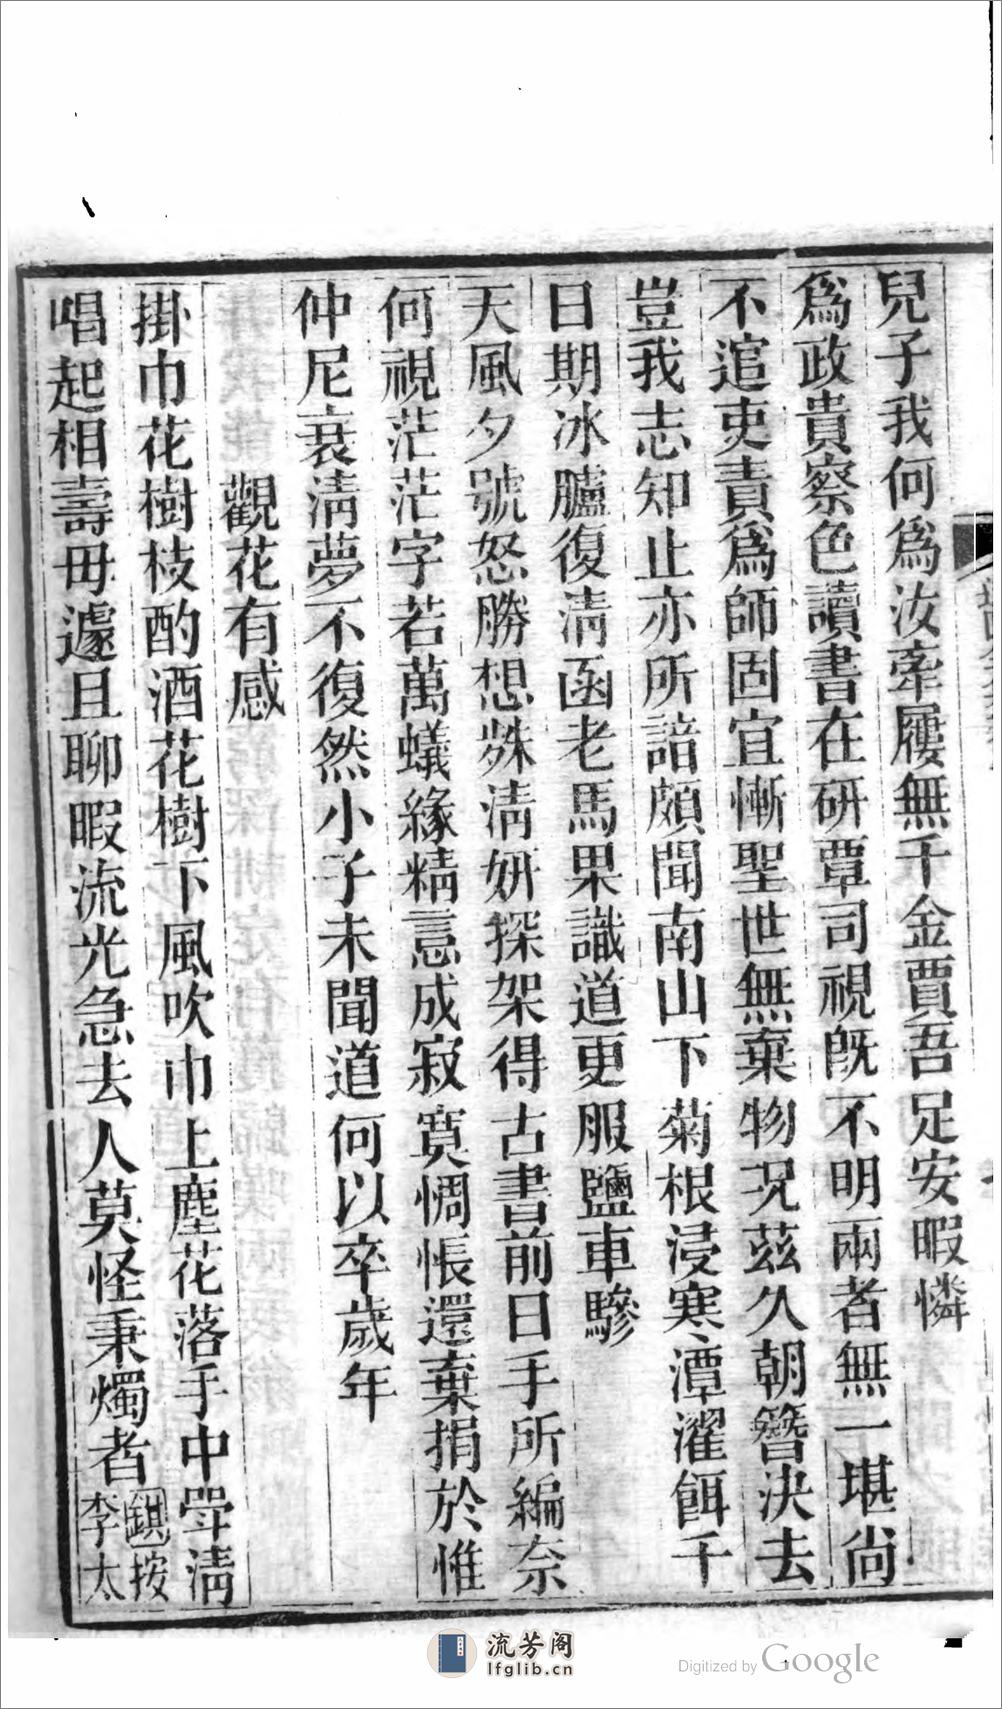 兒子我何爲汝牽屨無千金賈吾足安暇憐
爲政貴察色讀書在研覃司視旣不明兩者無一堪尙
不逭吏責爲師固宜慚聖世無棄物況茲久朝簪決去
豈我志知止亦所諳頗聞南山下菊根浸寒潭濯餌千
日期冰臚復淸函老馬果識道更服鹽車驂
天風夕號怒勝想殊淸姸探架得古書前日手所編奈
何視茫茫字若萬蟻緣精意成寂寞惆悵還棄捐於惟
仲尼衰淸夢不復然小子未聞道何以卒歲年
觀花有感
掛巾花樹枝酌酒花樹下風吹巾上塵花落手中斝淸
唱起相壽毋遽且聊暇流光急去人莫怪秉燭者
鎮按
李太
流芳阁
lfglib.cn
Digitized by Google